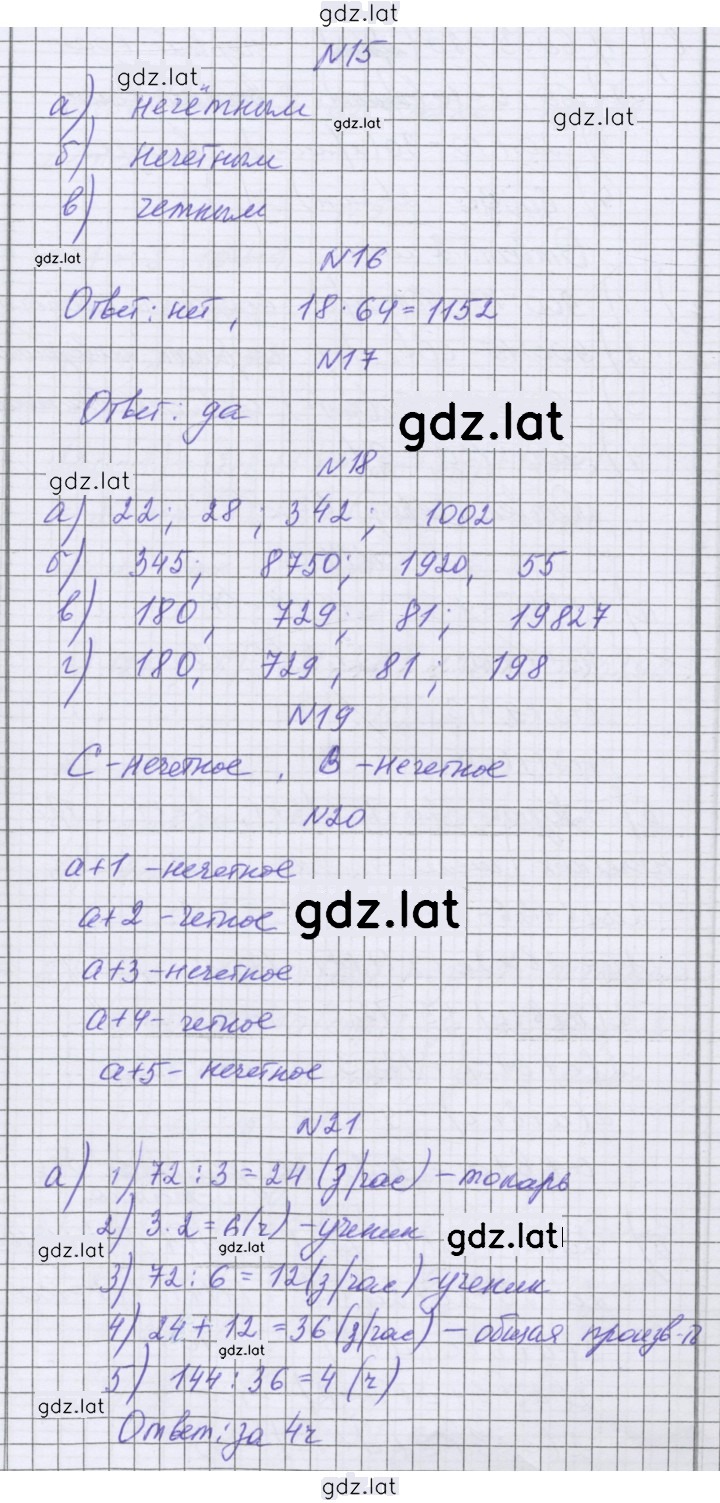 gdz.lat
N15
gdz.lat
а) нечётным
gdz.lat
gdz.lat
б) нечетным
в) четным
gdz.lat
N16
Ответ: нет, 18·64=1152
N17
Ответ: да
gdz.lat
N18
gdz.lat
а) 22; 28; 342; 1002
б) 345; 8750; 1920, 55
в) 180, 729; 81; 19827
г) 180, 729, 81; 198
N19
С - нечетное, В - нечетное
N20
а+1 - нечетное
а+2 - четное
gdz.lat
а+3 - нечетное
а+4 - четное
а+5 - нечетное
N21
а) 1) 72 : 3 = 24 (з/час) - токарь
2) 3·2=6(ч) - ученик
gdz.lat
gdz.lat
gdz.lat
3) 72 : 6 = 12(з/час) - ученик
4) 24 + 12 = 36(з/час) - общая произв-ть
gdz.lat
5) 144 : 36 = 4 (ч)
gdz.lat
Ответ: за 4ч
gdz.lat